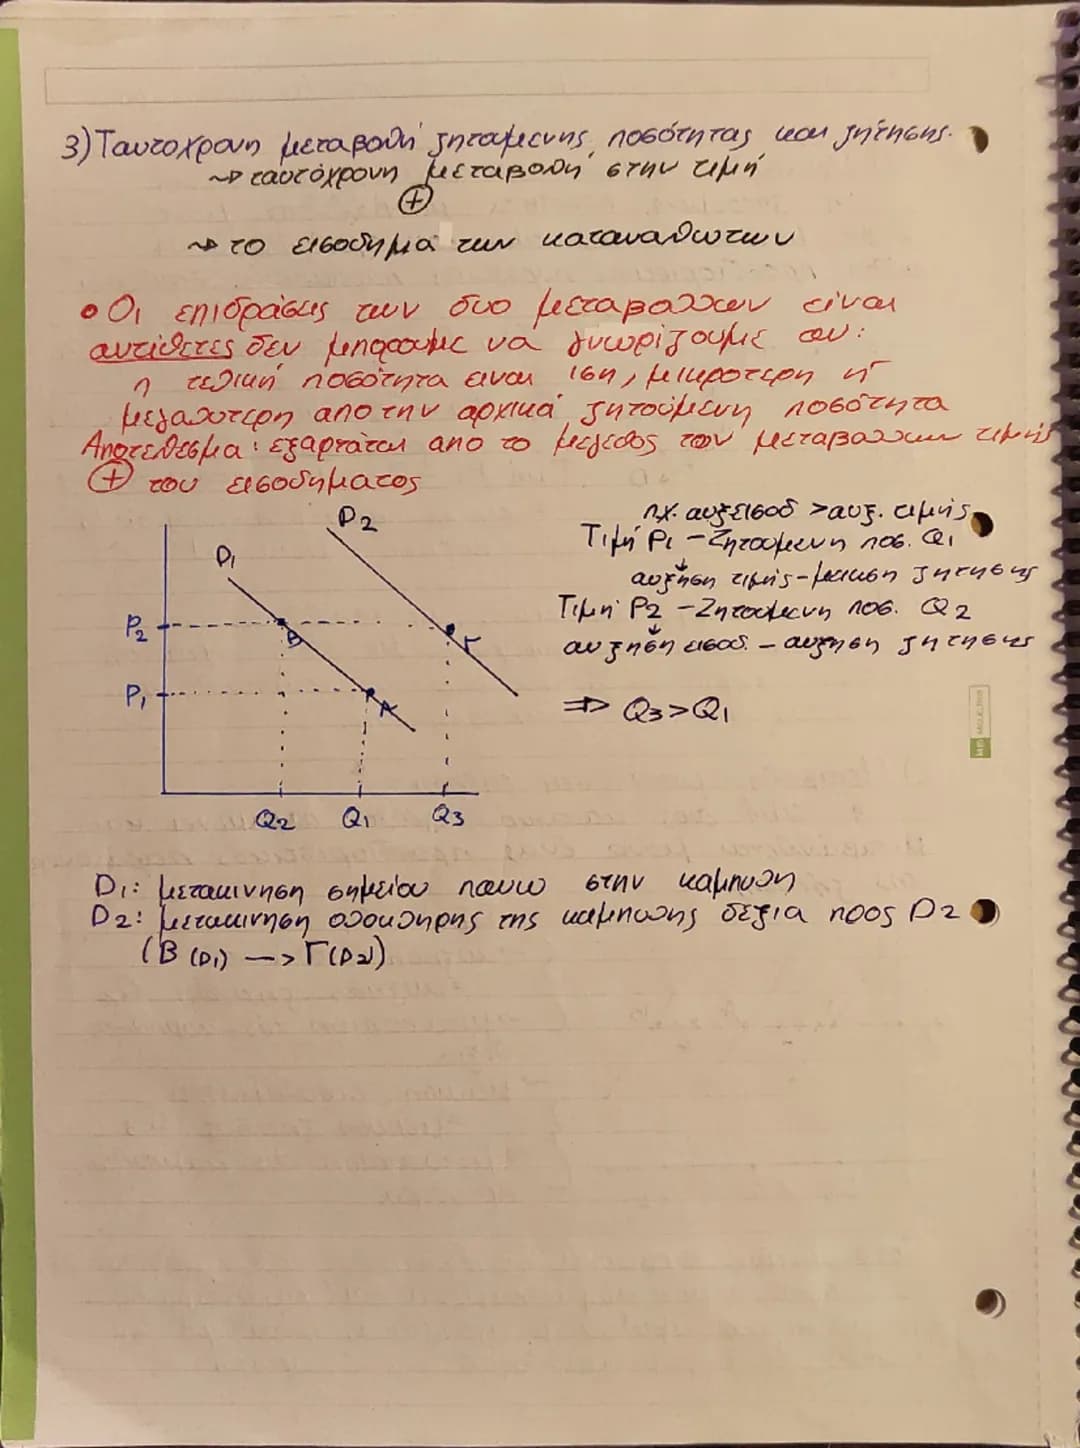 3) Ταυτοχρονη μεταβολή ζηταμενης ποσότητας και ζητησης.
~> ταυτόχρονη μεταβολή στην τιμή
+
~> το εισοδημα των καταναλωτων
• Οι επιδράσεις των δυο μεταβολλων είναι
αντίθετες δεν μπορουμε να γνωρίζουμε αν:
η τελική ποσότητα ειναι ιση, μικροτερη ή
μεγαλυτερη απο την αρχικά ζητούμενη ποσότητα
Αποτελεσμα: εξαρταται απο το μεγεθος των μεταβολλων τιμής
+ του εισοδηματος
πχ. αυξ εισοδ > αυξ. τιμής
Τιμή P1 - Ζητουμενη ποσ. Q1
αυξηση τιμής - μειωση ζητησης
Τιμή P2 - Ζητουμενη ποσ. Q2
αυξηση εισοδ. - αυξηση ζητησης
=> Q3>Q1
D2
D1
P2
B
Γ
P1
A
Q2 Q1 Q3
D1: μετακινηση σημείου πανω στην καμπυλη
D2: μετακινηση ολοκληρης της καμπυλης δεξια προς D2
(B (D1) --> Γ(D2))